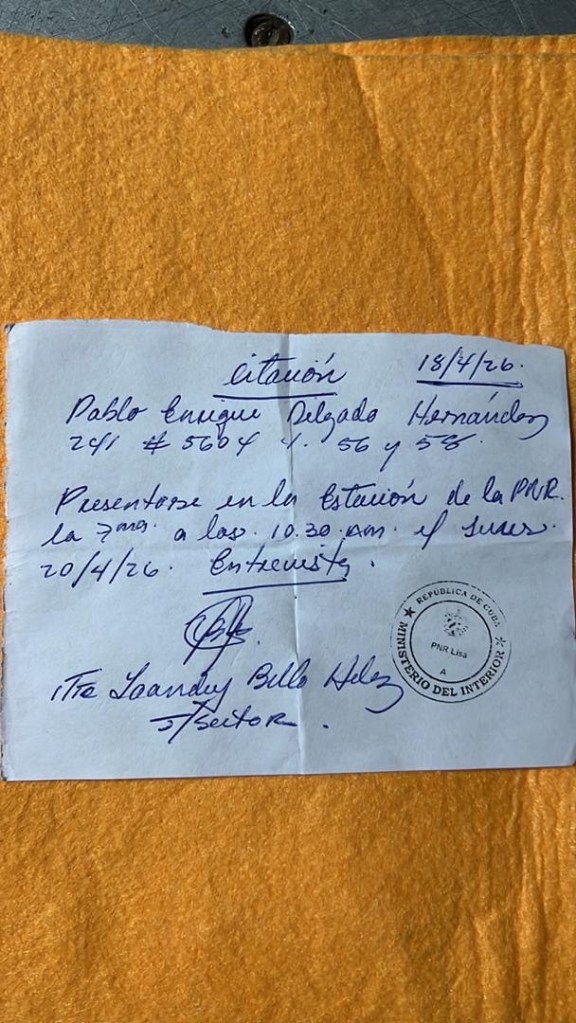 Citación 18/4/26.
Pablo Enrique Delgado Hernández
241 # 5604 56 y 58.
Presentarse en la Estación de la PNR.
la 7ma. a las 10.30 AM. el lunes.
20/4/26. Entrevista.
Bello
J/Sector.
REPÚBLICA DE CUBA
MINISTERIO DEL INTERIOR
PNR Lisa
A